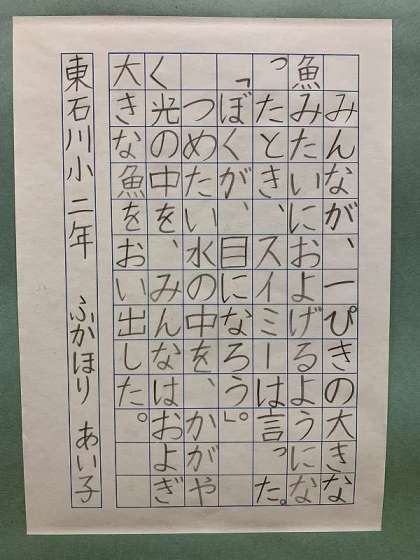 みんなが、一ぴきの大きな
魚みたいにおよげるようにな
ったとき、スイミーは言った。
「ぼくが、目になろう。」
つめたい水の中を、かがや
く光の中を、みんなはおよぎ
大きな魚をおい出した。
東石川小二年 ふかほり あい子